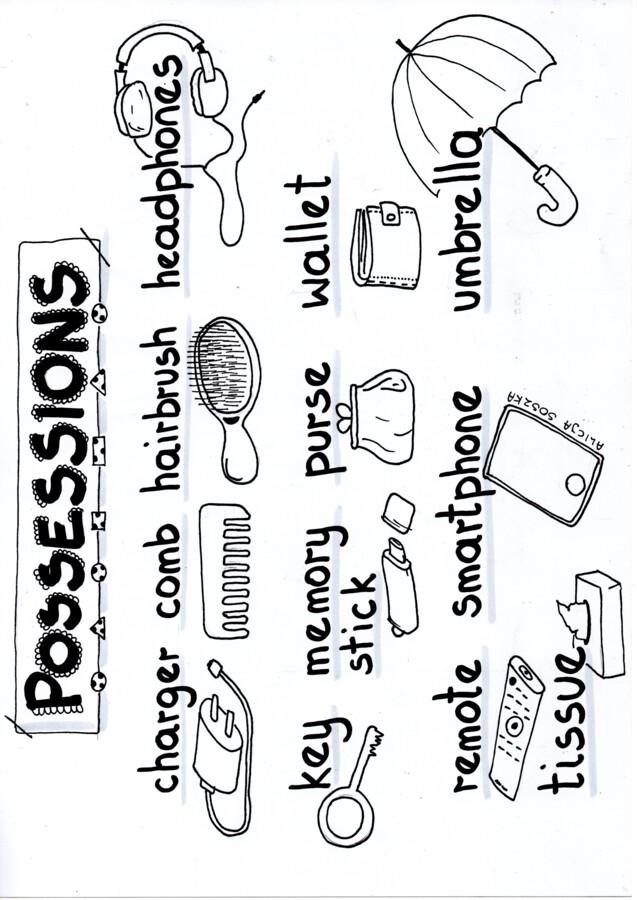 POSSESSIONS
charger comb hairbrush headphones
key memory stick purse wallet
remote smartphone umbrella
ALICJA SOSZKA
tissue